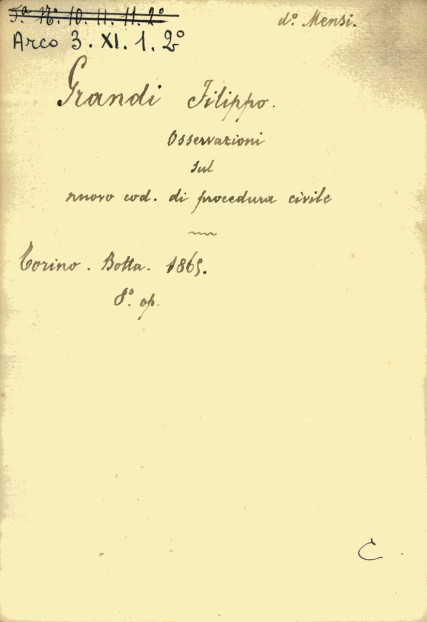 d.º Mensi.
Arco 3. XI. 1. 2º
Grandi Filippo.
Osservazioni
sul
nuovo cod. di procedura civile
Torino. Botta. 1865.
8.º op.
C.